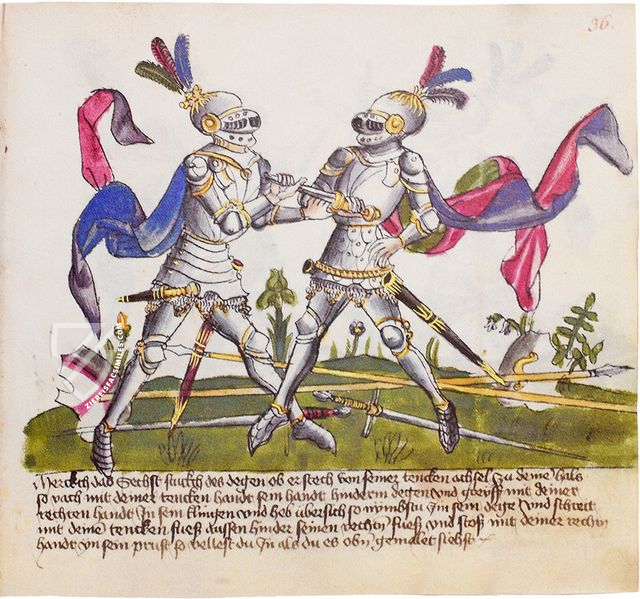 36.
ZIEREISFACSIMILES.COM
Merckch das Sechst stuckh des degen ob er stech von seiner tencken achsel zu deinē hals
so vach mit deiner tencken handt sein handt hinderm degen und greyff mit deiner
rechten handt In sein klingen und heb ubersich so nymbstu Im sein degē Und schreit
mit deinē tencken fuess aussen hinder seinen rechtn fuess und stoß mit deiner rechtn
handt yn sein prust so velest du In als du es obn gemalet siehst